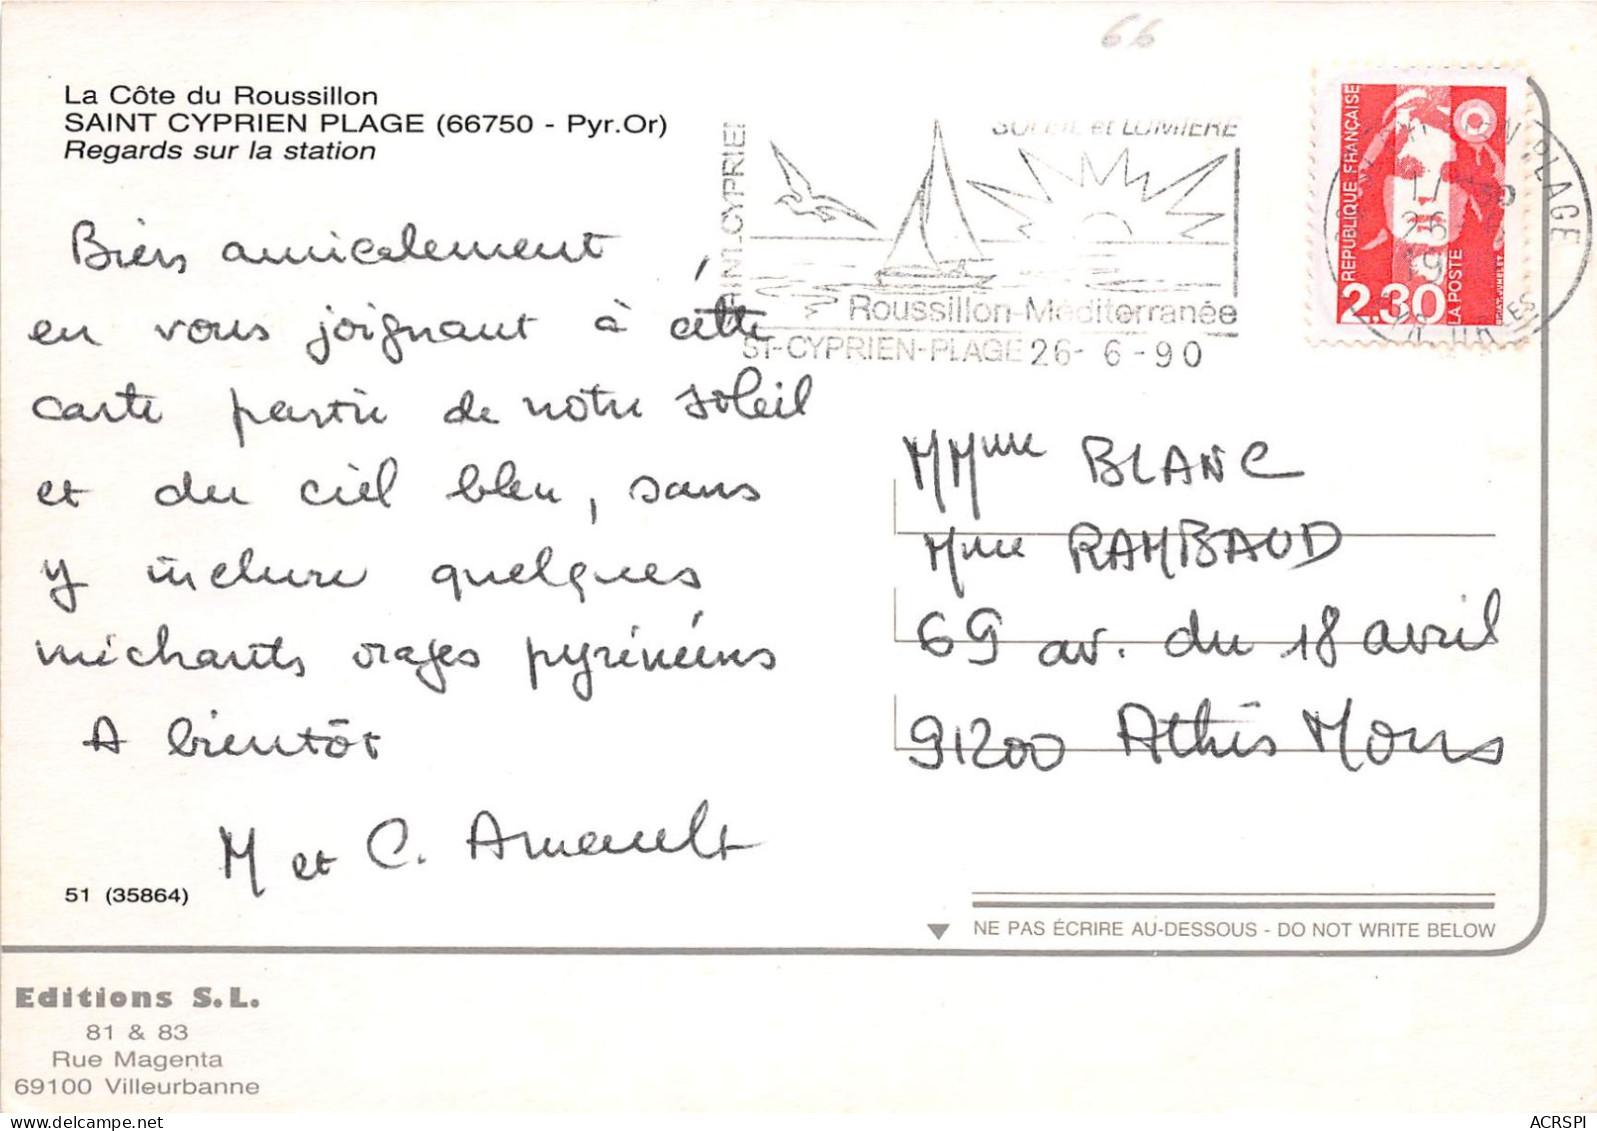 66
La Côte du Roussillon
SAINT CYPRIEN PLAGE (66750 - Pyr.Or)
Regards sur la station
SOLEIL et LUMIERE
SAINT.CYPRIEN
Roussillon-Méditerranée
ST-CYPRIEN-PLAGE 26- 6 -90
REPUBLIQUE FRANÇAISE
2.30
LA POSTE
PLAGE
Bien amicalement,
en vous joignant à cette
carte partie de notre soleil
et du ciel bleu, sans
y inclure quelques
michants orages pyrénéens
A bientôt
M et C. Arnault
MMme BLANC
Mme RAMBAUD
69 av. du 18 avril
91200 Athis Mons
51 (35864)
NE PAS ÉCRIRE AU-DESSOUS - DO NOT WRITE BELOW
Editions S.L.
81 & 83
Rue Magenta
69100 Villeurbanne
ACRSPI